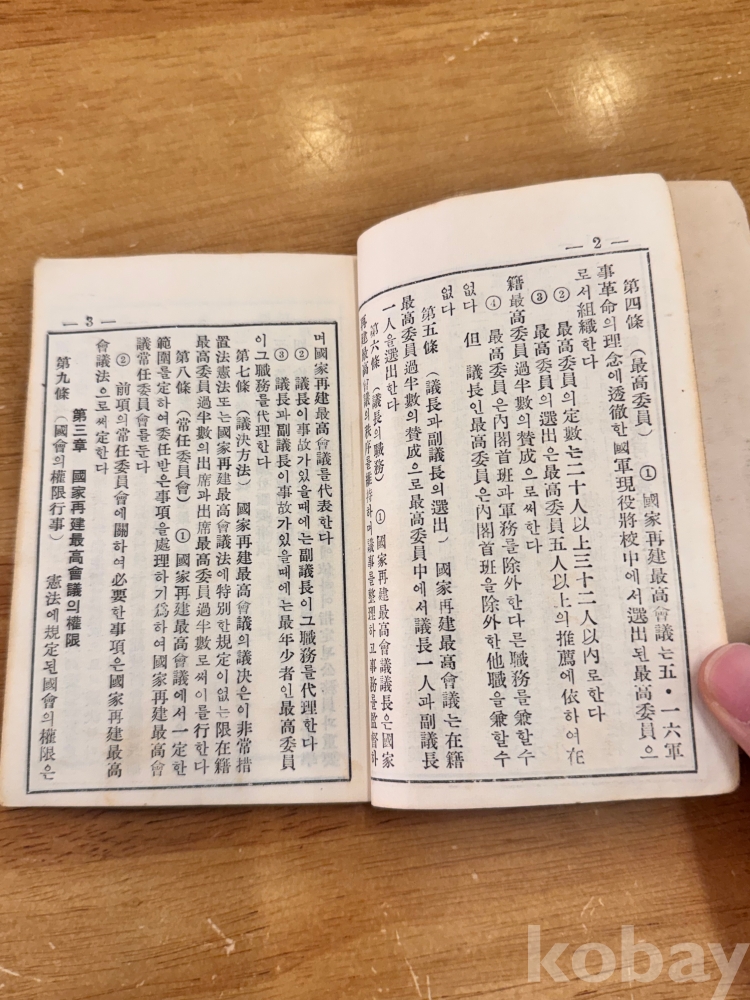 — 2 —
第四條 (最高委員) ① 國家再建最高會議는 五·一六軍
事革命의 理念에 透徹한 國軍現役將校中에서 選出된 最高委員으
로서 組織한다
② 最高委員의 定數는 二十人以上三十二人以內로 한다
③ 最高委員의 選出은 最高委員 五人以上의 推薦에 依하여 在
籍最高委員過半數의 賛成으로써 한다
④ 最高委員은 內閣首班과 軍務를 除外한 다른 職務를 兼할 수
없다 但 議長인 最高委員은 內閣首班을 除外한 他職을 兼할 수
없다
第五條 (議長과 副議長의 選出) 國家再建最高會議는 在籍
最高委員過半數의 賛成으로 最高委員中에서 議長 一人과 副議長
一人을 選出한다
第六條 (議長의 職務) ① 國家再建最高會議議長은 國家
再建最高會議의 秩序를 維持하며 議事를 整理하고 事務를 監督하
— 3 —
며 國家再建最高會議를 代表한다
② 議長이 事故가 있을 때에는 副議長이 그 職務를 代理한다
③ 議長과 副議長이 事故가 있을 때에는 最年少者인 最高委員
이 그 職務를 代理한다
第七條 (議決方法) 國家再建最高會議의 議決은 이 非常措
置法 憲法 또는 國家再建最高會議法에 特別한 規定이 없는 限 在籍
最高委員過半數의 出席과 出席最高委員過半數로써 이를 行한다
第八條 (常任委員會) ① 國家再建最高會議에서 一定한
範圍를 定하여 委任받은 事項을 處理하기 爲하여 國家再建最高會
議常任委員會를 둔다
② 前項의 常任委員會에 關하여 必要한 事項은 國家再建最高
會議法으로써 定한다
第三章 國家再建最高會議의 權限
第九條 (國會의 權限行事) 憲法에 規定된 國會의 權限은
kobay